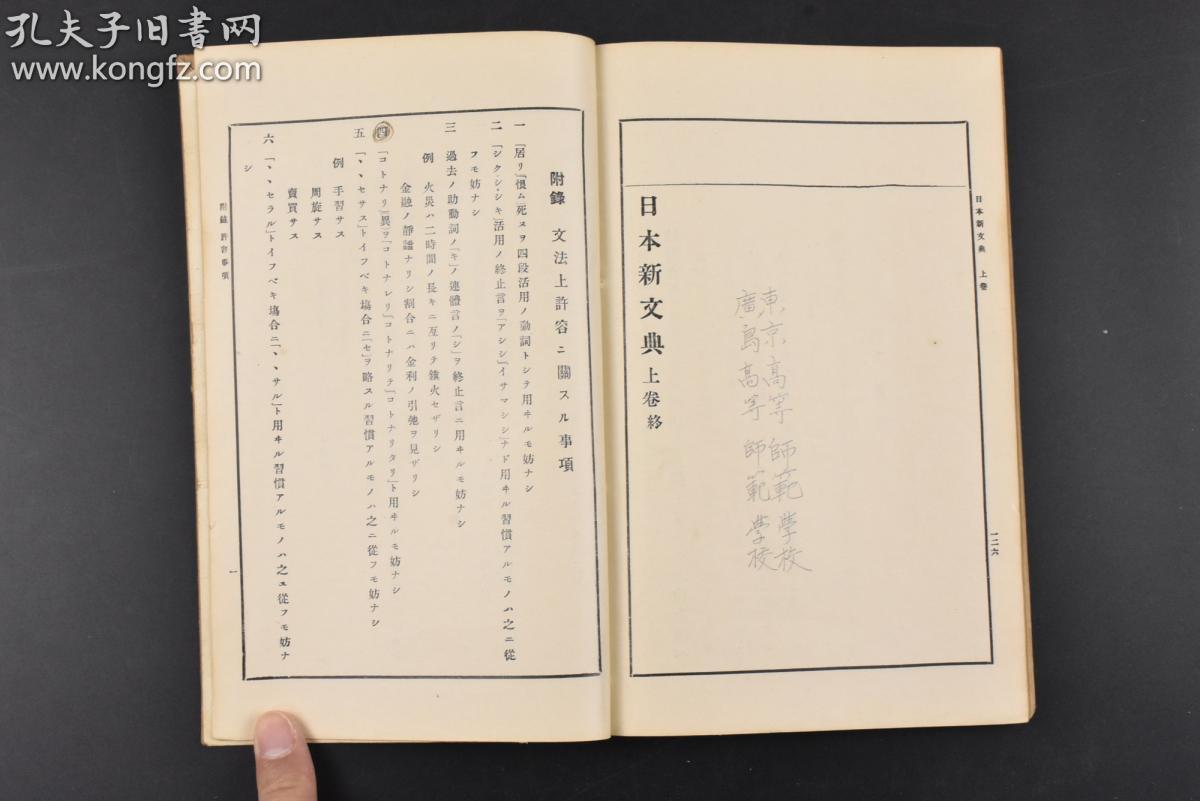 孔夫子旧书网
www.kongfz.com
日本新文典 上卷
一二六
東京高等師範學校
廣島高等師範學校
日本新文典上卷終
附錄 文法上許容ニ關スル事項
一 「居リ」「恨ム」「死ヌ」ヲ四段活用ノ動詞トシテ用ヰルモ妨ナシ
二 「シク・シ・シキ」活用ノ終止言ヲ「アシシ」「イサマシシ」ナド用ヰル習慣アルモノハ之ニ從
フモ妨ナシ
三 過去ノ助動詞ノ「キ」ノ連體言ノ「シ」ヲ終止言ニ用ヰルモ妨ナシ
例 火災ハ二時間ノ長キニ亙リテ鎭火セザリシ
金融ノ靜謐ナリシ割合ニハ金利ノ引弛ヲ見ザリシ
四 「コトナリ」(異)ヲ「コトナレリ」「コトナリテ」「コトナリタリ」ト用ヰルモ妨ナシ
五 「、、セサス」トイフベキ塲合ニ「セ」ヲ略スル習慣アルモノハ之ニ從フモ妨ナシ
例 手習サス
周旋サス
賣買サス
六 「、、セラル」トイフベキ塲合ニ「、、サル」ト用ヰル習慣アルモノハ之ニ從フモ妨ナ
シ
附錄 許容事項
一